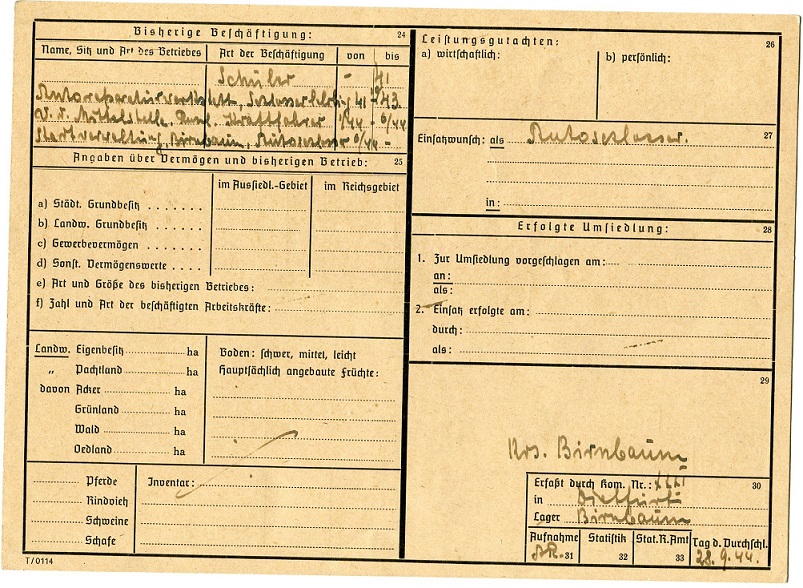 Bisherige Beschäftigung: 24
Name, Sitz und Art des Betriebes Art der Beschäftigung von bis
Schüler - 41
Autoreparaturwerkstatt, Schlosserlehrling 41 43
Kraftfahrer /44 - 6/44
Startverwaltung, Birnbaum, Autoschlosser 6/44 -
Angaben über Vermögen und bisherigen Betrieb: 25
im Aussiedl.-Gebiet im Reichsgebiet
a) Städt. Grundbesitz
b) Landw. Grundbesitz
c) Gewerbevermögen
d) Sonst. Vermögenswerte
e) Art und Größe des bisherigen Betriebes:
f) Zahl und Art der beschäftigten Arbeitskräfte:
Landw. Eigenbesitz ha
„ Pachtland ha
davon Acker ha
Grünland ha
Wald ha
Oedland ha
Boden: schwer, mittel, leicht
Hauptsächlich angebaute Früchte:
Pferde
Rindvieh
Schweine
Schafe
Inventar:
T/0114
Leistungsgutachten: 26
a) wirtschaftlich: b) persönlich:
Einsatzwunsch: als Autoschlosser. 27
in:
Erfolgte Umsiedlung: 28
1. Zur Umsiedlung vorgeschlagen am:
an:
als:
2. Einsatz erfolgte am:
durch:
als:
29
Krs. Birnbaum
Erfaßt durch Kom. Nr.: XXXI 30
in Dietfurt
Lager Birnbaum
Aufnahme 31 Statistik 32 Stat.R.Amt 33 Tag d. Durchschl.
28.9.44.